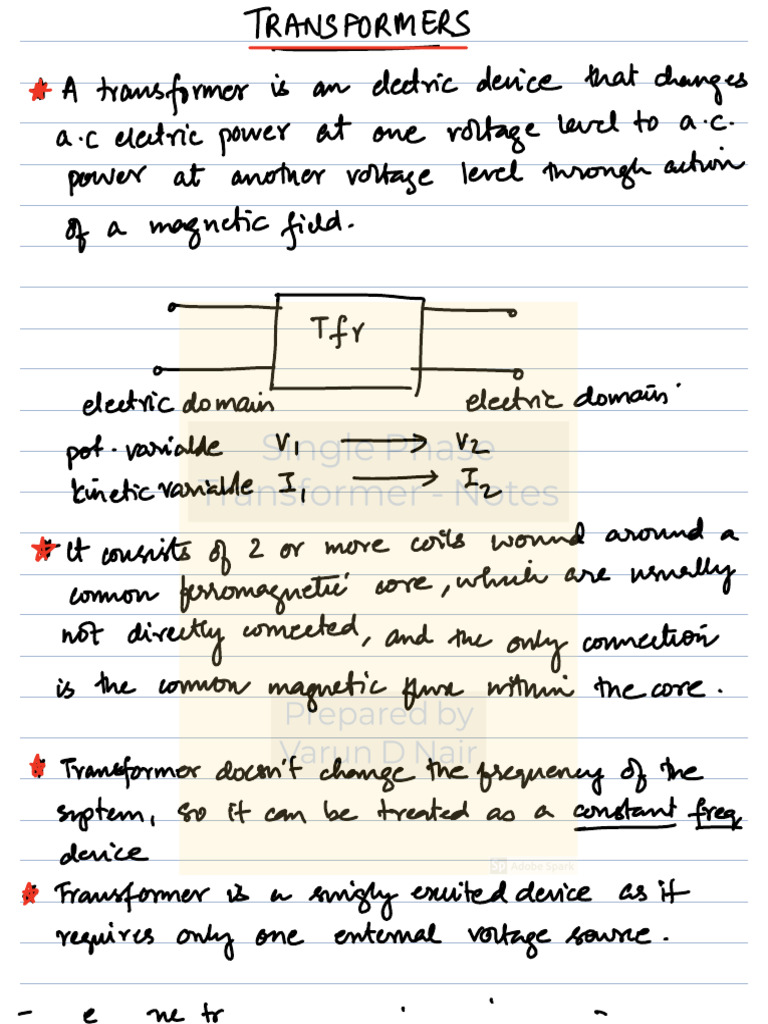 TRANSFORMERS
★ A transformer is an electric device that changes
a.c electric power at one voltage level to a.c.
power at another voltage level through action
of a magnetic field.
Tfr
electric domain electric domain
pot. variable V1 → V2
kinetic variable I1 → I2
Single Phase
Transformer - Notes
★ It consists of 2 or more coils wound around a
common ferromagnetic core, which are usually
not directly connected, and the only connection
is the common magnetic flux within the core.
Prepared by
Varun D Nair
★ Transformer doesn't change the frequency of the
system, so it can be treated as a constant freq
device
Sp Adobe Spark
★ Transformer is a singly excited device as it
requires only one external voltage source.